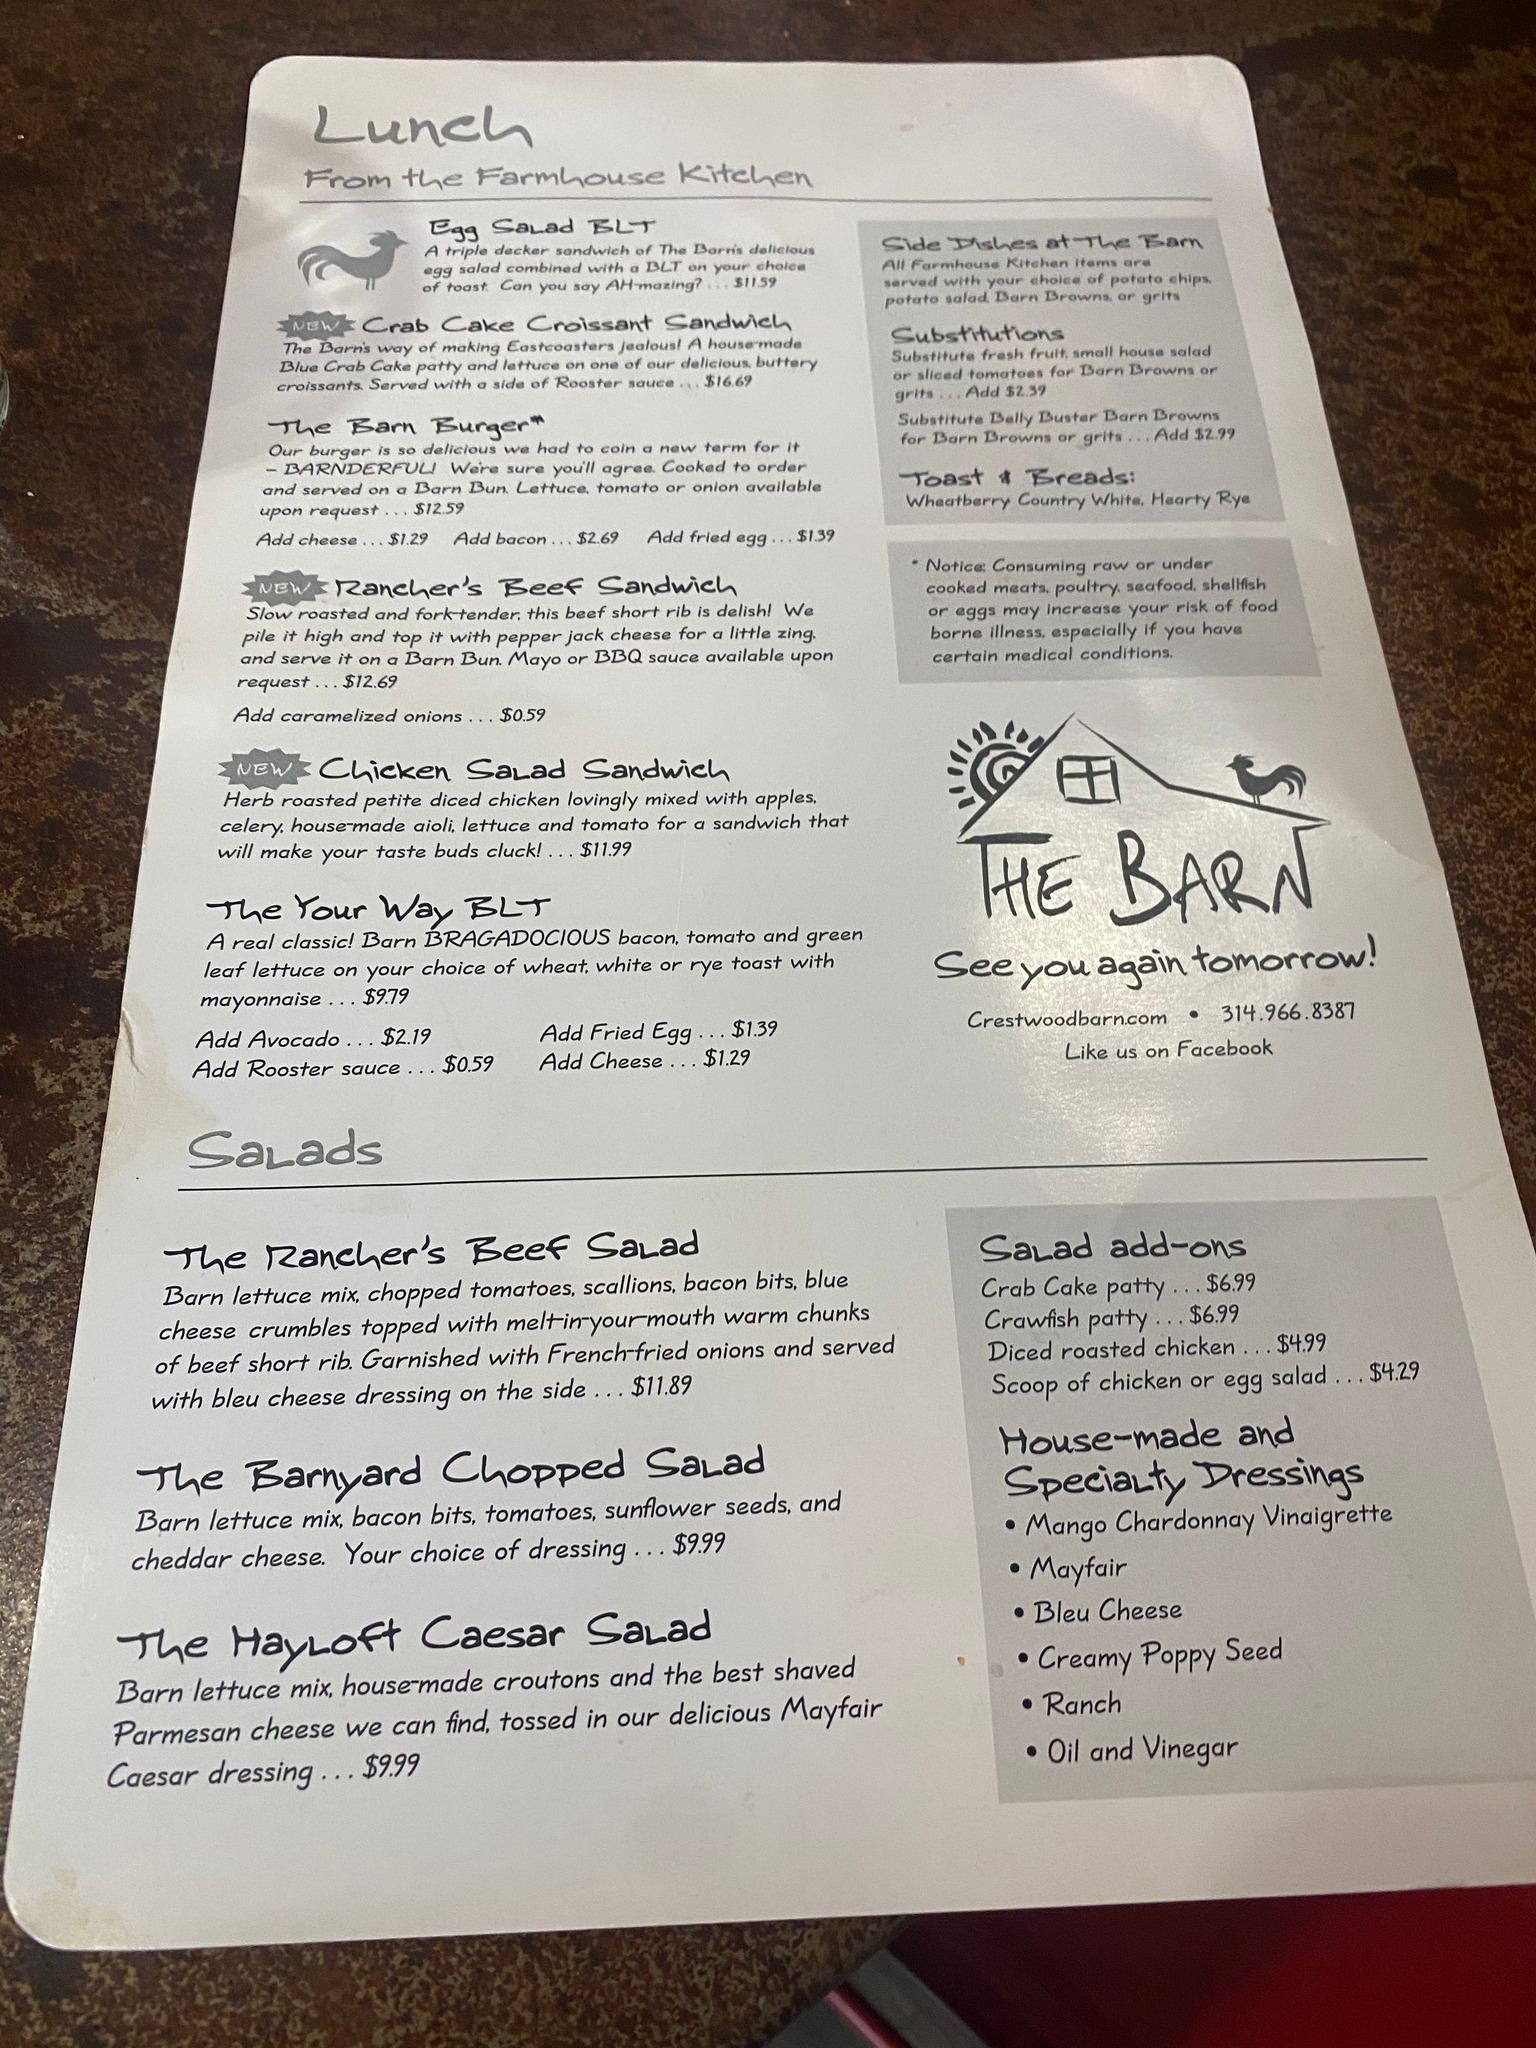 Lunch
From the Farmhouse Kitchen
Egg Salad BLT
A triple decker sandwich of The Barn's delicious
egg salad combined with a BLT on your choice
of toast. Can you say AH-mazing? . . . $11.59
NEW Crab Cake Croissant Sandwich
The Barn's way of making Eastcoasters jealous! A house-made
Blue Crab Cake patty and lettuce on one of our delicious, buttery
croissants. Served with a side of Rooster sauce . . . $16.69
The Barn Burger*
Our burger is so delicious we had to coin a new term for it
– BARNDERFUL! We're sure you'll agree. Cooked to order
and served on a Barn Bun. Lettuce, tomato or onion available
upon request . . . $12.59
Add cheese . . . $1.29 Add bacon . . . $2.69 Add fried egg . . . $1.39
NEW Rancher's Beef Sandwich
Slow roasted and fork-tender, this beef short rib is delish! We
pile it high and top it with pepper jack cheese for a little zing,
and serve it on a Barn Bun. Mayo or BBQ sauce available upon
request . . . $12.69
Add caramelized onions . . . $0.59
NEW Chicken Salad Sandwich
Herb roasted petite diced chicken lovingly mixed with apples,
celery, house-made aioli, lettuce and tomato for a sandwich that
will make your taste buds cluck! . . . $11.99
The Your Way BLT
A real classic! Barn BRAGADOCIOUS bacon, tomato and green
leaf lettuce on your choice of wheat, white or rye toast with
mayonnaise . . . $9.79
Add Avocado . . . $2.19 Add Fried Egg . . . $1.39
Add Rooster sauce . . . $0.59 Add Cheese . . . $1.29
Side Dishes at The Barn
All Farmhouse Kitchen items are
served with your choice of potato chips,
potato salad, Barn Browns, or grits
Substitutions
Substitute fresh fruit, small house salad
or sliced tomatoes for Barn Browns or
grits . . . Add $2.39
Substitute Belly Buster Barn Browns
for Barn Browns or grits . . . Add $2.99
Toast & Breads:
Wheatberry, Country White, Hearty Rye
* Notice: Consuming raw or under
cooked meats, poultry, seafood, shellfish
or eggs may increase your risk of food
borne illness, especially if you have
certain medical conditions.
THE BARN
See you again tomorrow!
Crestwoodbarn.com • 314.966.8387
Like us on Facebook
Salads
The Rancher's Beef Salad
Barn lettuce mix, chopped tomatoes, scallions, bacon bits, blue
cheese crumbles topped with melt-in-your-mouth warm chunks
of beef short rib. Garnished with French-fried onions and served
with bleu cheese dressing on the side . . . $11.89
The Barnyard Chopped Salad
Barn lettuce mix, bacon bits, tomatoes, sunflower seeds, and
cheddar cheese. Your choice of dressing . . . $9.99
The Hayloft Caesar Salad
Barn lettuce mix, house-made croutons and the best shaved
Parmesan cheese we can find, tossed in our delicious Mayfair
Caesar dressing . . . $9.99
Salad add-ons
Crab Cake patty . . . $6.99
Crawfish patty . . . $6.99
Diced roasted chicken . . . $4.99
Scoop of chicken or egg salad . . . $4.29
House-made and
Specialty Dressings
• Mango Chardonnay Vinaigrette
• Mayfair
• Bleu Cheese
• Creamy Poppy Seed
• Ranch
• Oil and Vinegar